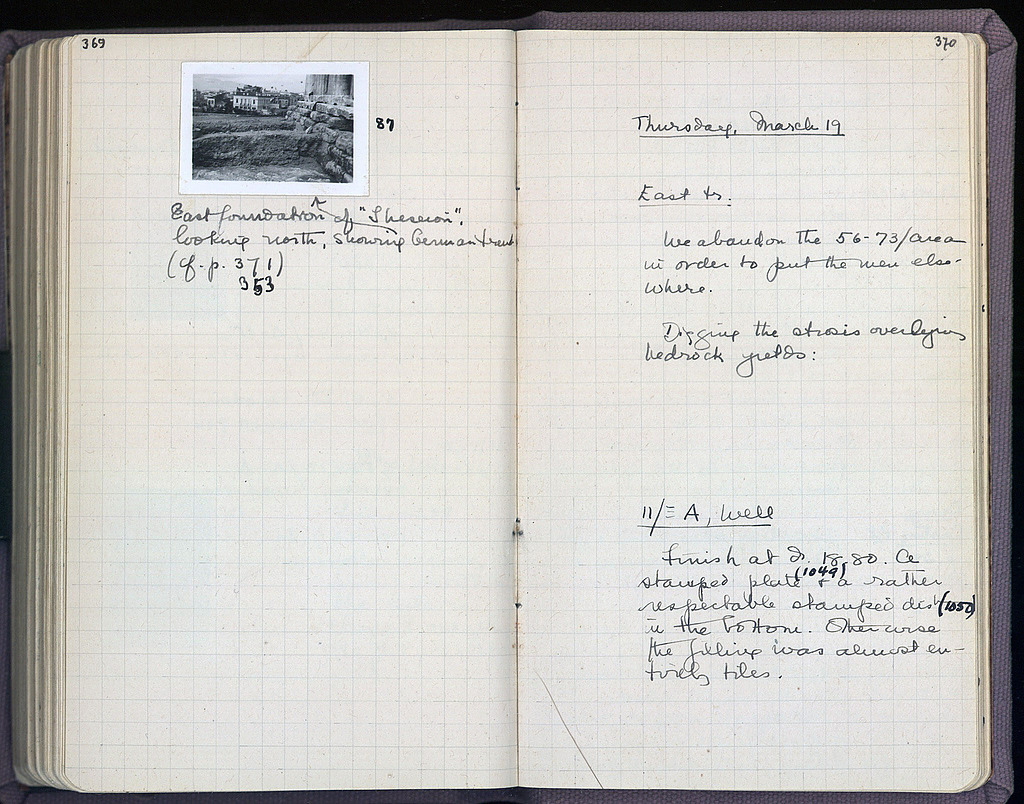 369
87
East foundation of "Theseion",
looking north, showing German trench
(cf. p. 371)
353
370
Thursday, March 19
East tr.
We abandon the 56-73/ area
in order to put the men else-
where.
Digging the strosis overlying
bedrock yields:
11/Ξ A, Well
Finish at 18.80. A
stamped plate (1049) + a rather
respectable stamped dish (1050)
in the bottom. Otherwise
the filling was almost en-
tirely tiles.